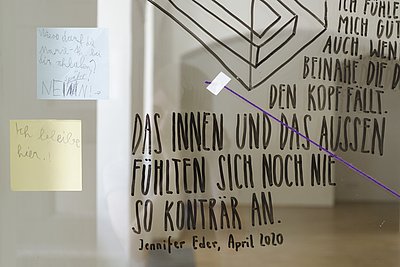 Wieso darf
zu
dir
NEIN!
Ich bleibe
hier!
ICH FÜHLE
MICH GUT
AUCH, WEN
BEINAHE DIE D
DEN KOPF FÄLLT.
DAS INNEN UND DAS AUSSEN
FÜHLTEN SICH NOCH NIE
SO KONTRÄR AN.
Jennifer Eder, April 2020